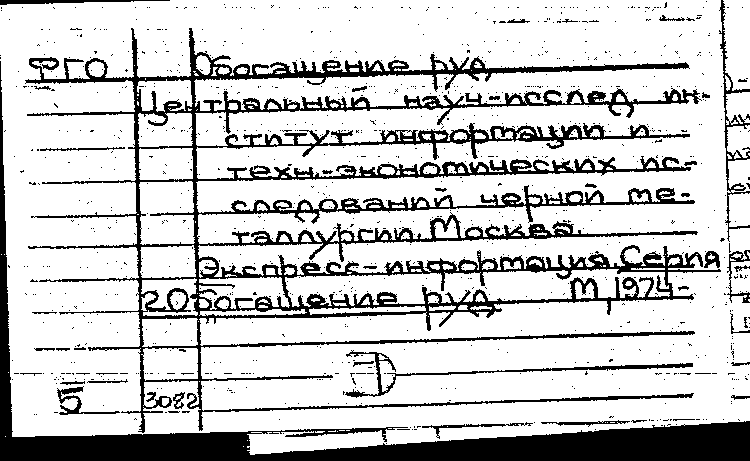 ФГО Обогащение руд
Центральный науч.-исслед. ин-
ститут информации и
техн.-экономических ис-
следований черной ме-
таллургии. Москва.
Экспресс-информация. Серия
2. Обогащение руд. М, 1974-
Б 3082